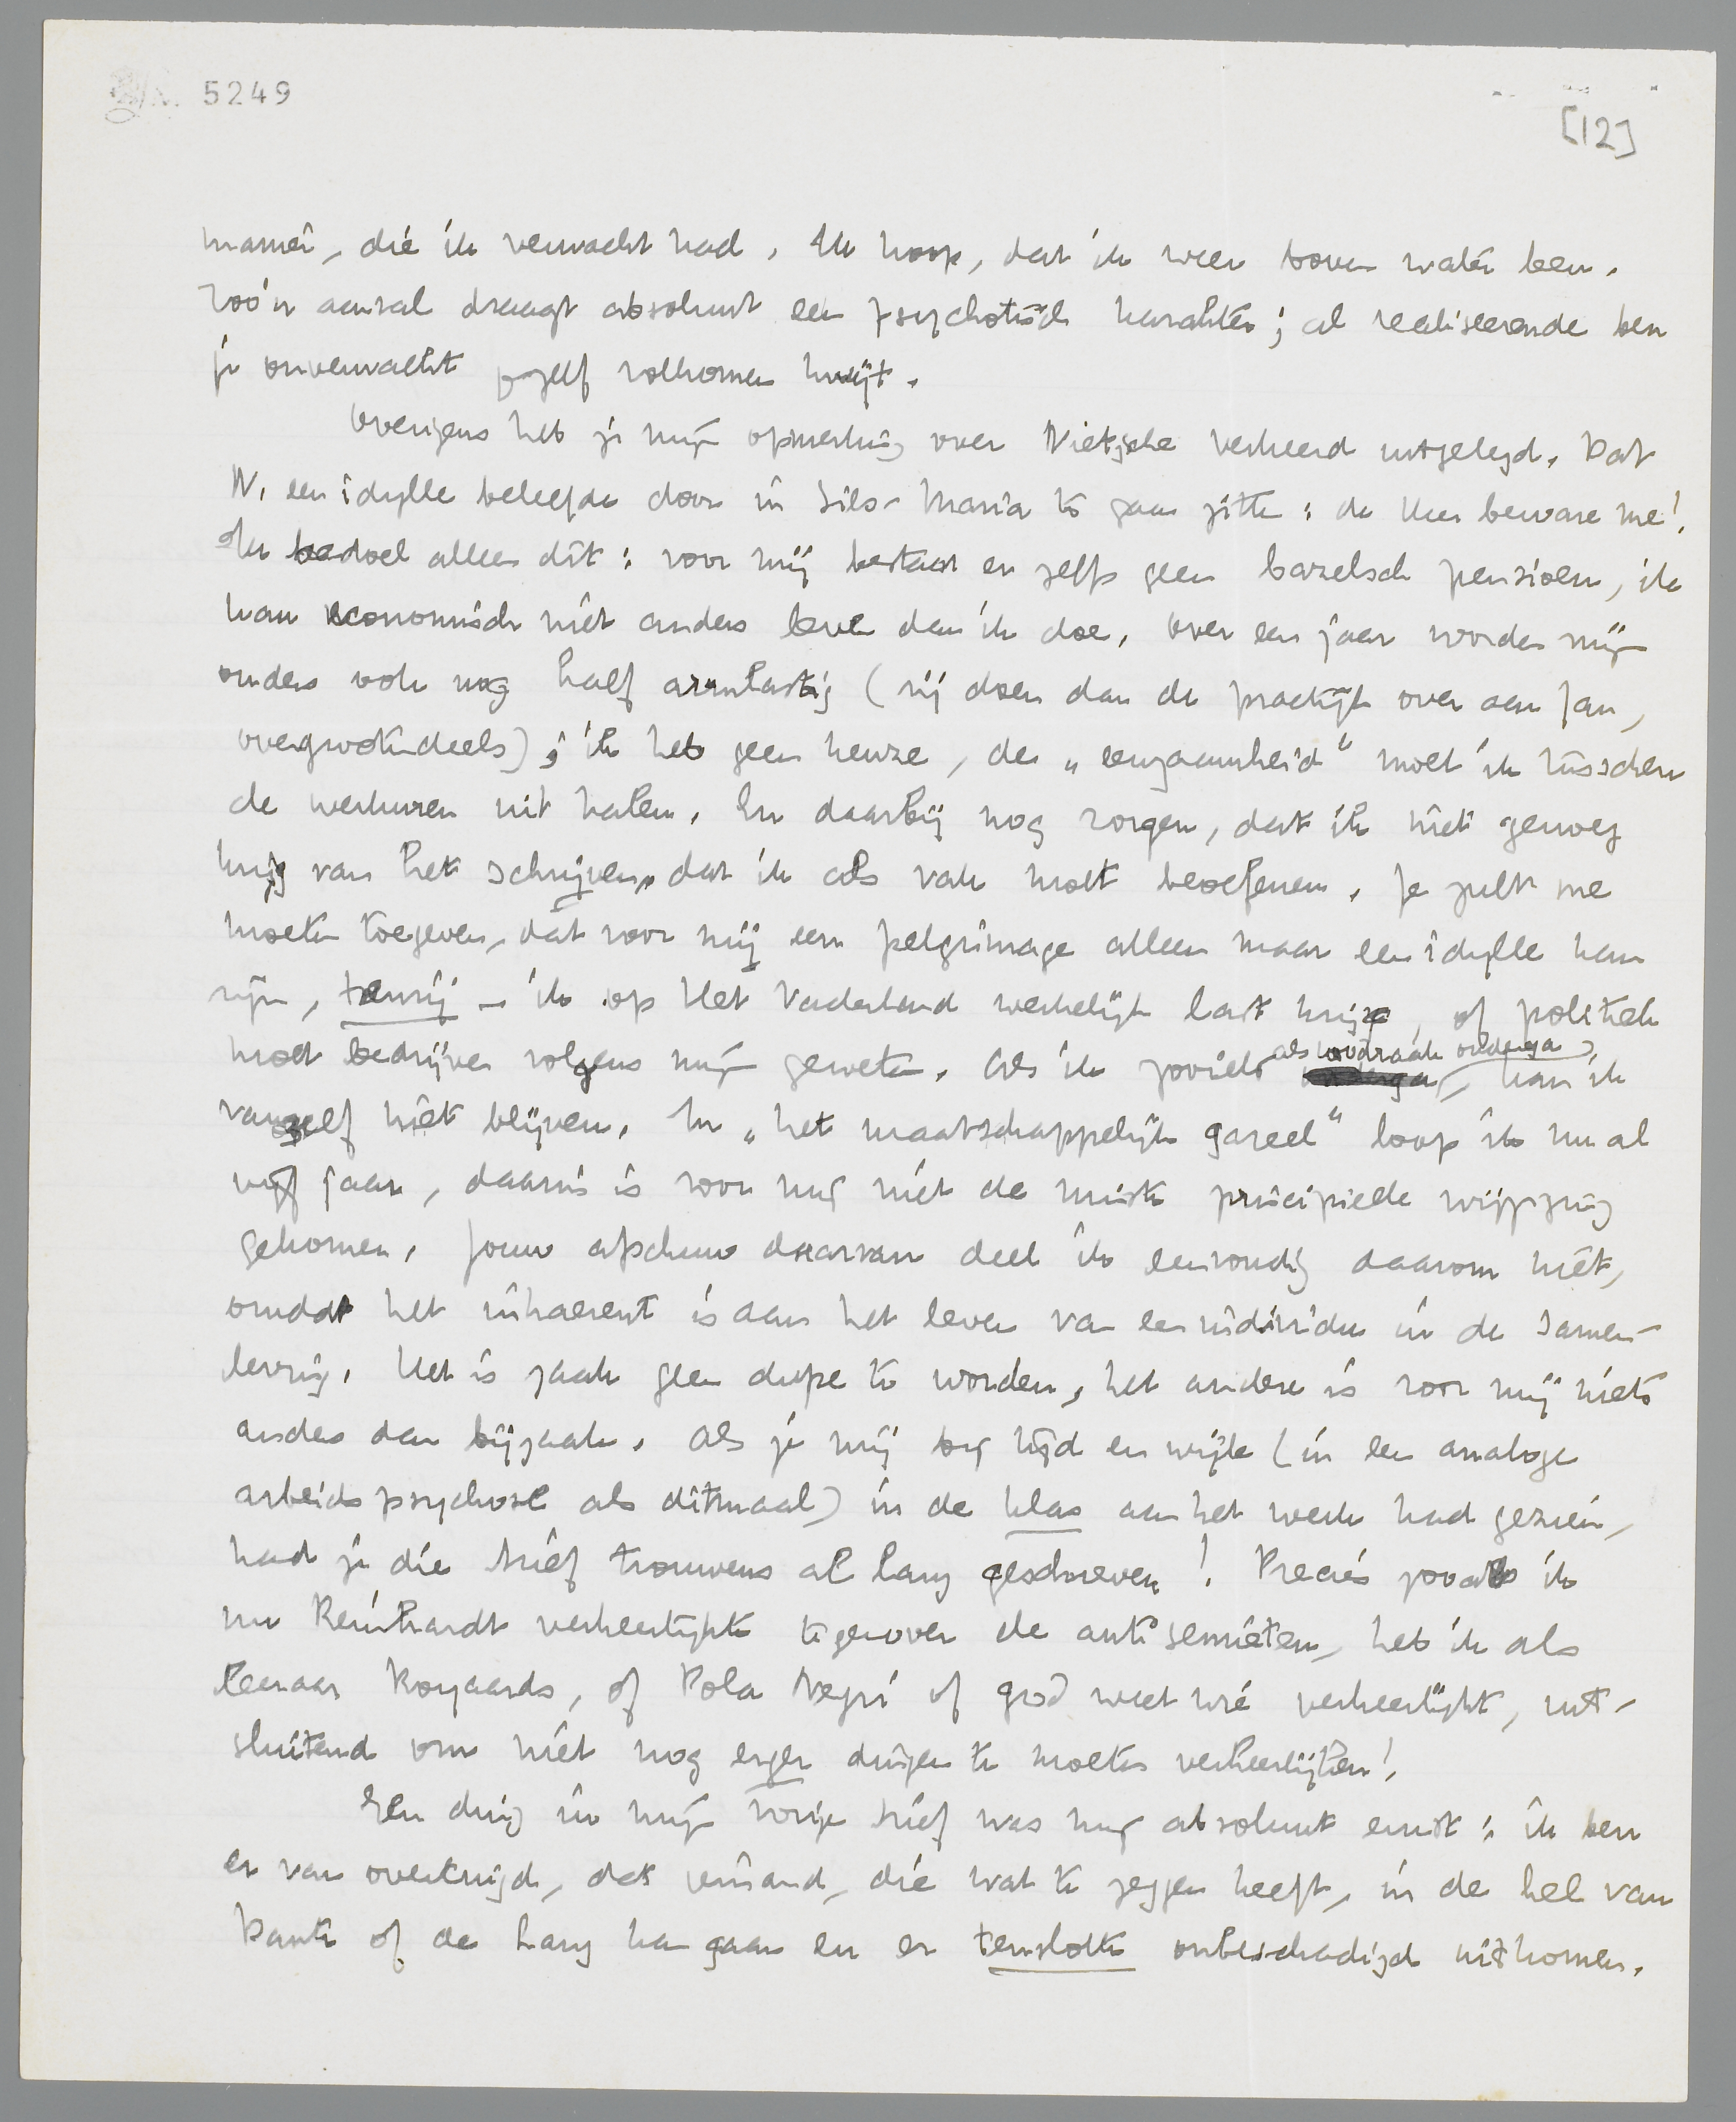 5249
[12]
manier, die ik verwacht had. Ik hoop, dat ik weer boven water ben.
Zoo'n aanval draagt absoluut een psychotisch karakter; al realiseerende ben
je onverwacht jezelf volkomen kwijt.
Overigens heb je mijn opmerking over Nietzsche verkeerd uitgelegd. Dat
N. een idylle beleefde door in Sils-Maria te gaan zitten: de Heer beware me!
Ik bedoel alleen dit: voor mij bestaat er zelfs geen bazelsch pensioen, ik
kan economisch niet anders leven dan ik doe. Over een jaar worden mijn
ouders ook nog half armlastig (zij doen dan de practijk over aan Jan,
overgrootendeels); ik heb geen keuze, de „eenzaamheid” moet ik tusschen
de werkuren uit halen. En daarbij nog zorgen, dat ik niet genoeg
krijg van het schrijven, dat ik als vak moet beoefenen. Je zult me
moeten toegeven, dat voor mij een pelgrimage alleen maar een idylle kan
zijn, tenzij - ik op Het Vaderland werkelijk last krijg, of politiek
moet bedrijven volgens mijn geweten. Als ik zooiets als noodzaak onderga, kan ik
vanzelf niet blijven. In „het maatschappelijk gareel” loop ik nu al
vijf jaar, daarin is voor mij niet de minste principieele wijziging
gekomen. Jouw afschuw daarvan deel ik eenvoudig daarom niet,
omdat het inhaerent is aan het leven van een individu in de samen-
leving. Het is zaak geen dupe te worden, het andere is voor mij niets
anders dan bijzaak. Als je mij bij tijd en wijle (in een analoge
arbeidspsychose als ditmaal) in de klas aan het werk had gezien,
had je die brief trouwens al lang geschreven! Precies zooals ik
nu Reinhardt verheerlijkte tegenover de antisemieten, heb ik als
leeraar Royaards, of Pola Negri of god weet wie verheerlijkt, uit-
sluitend om niet nog erger dingen te moeten verheerlijken!
Een ding in mijn vorige brief was mij absoluut ernst: ik ben
er van overtuigd, dat iemand, die wat te zeggen heeft, in de hel van
Dante of de Haag kan gaan en er tenslotte onbeschadigd uitkomen.